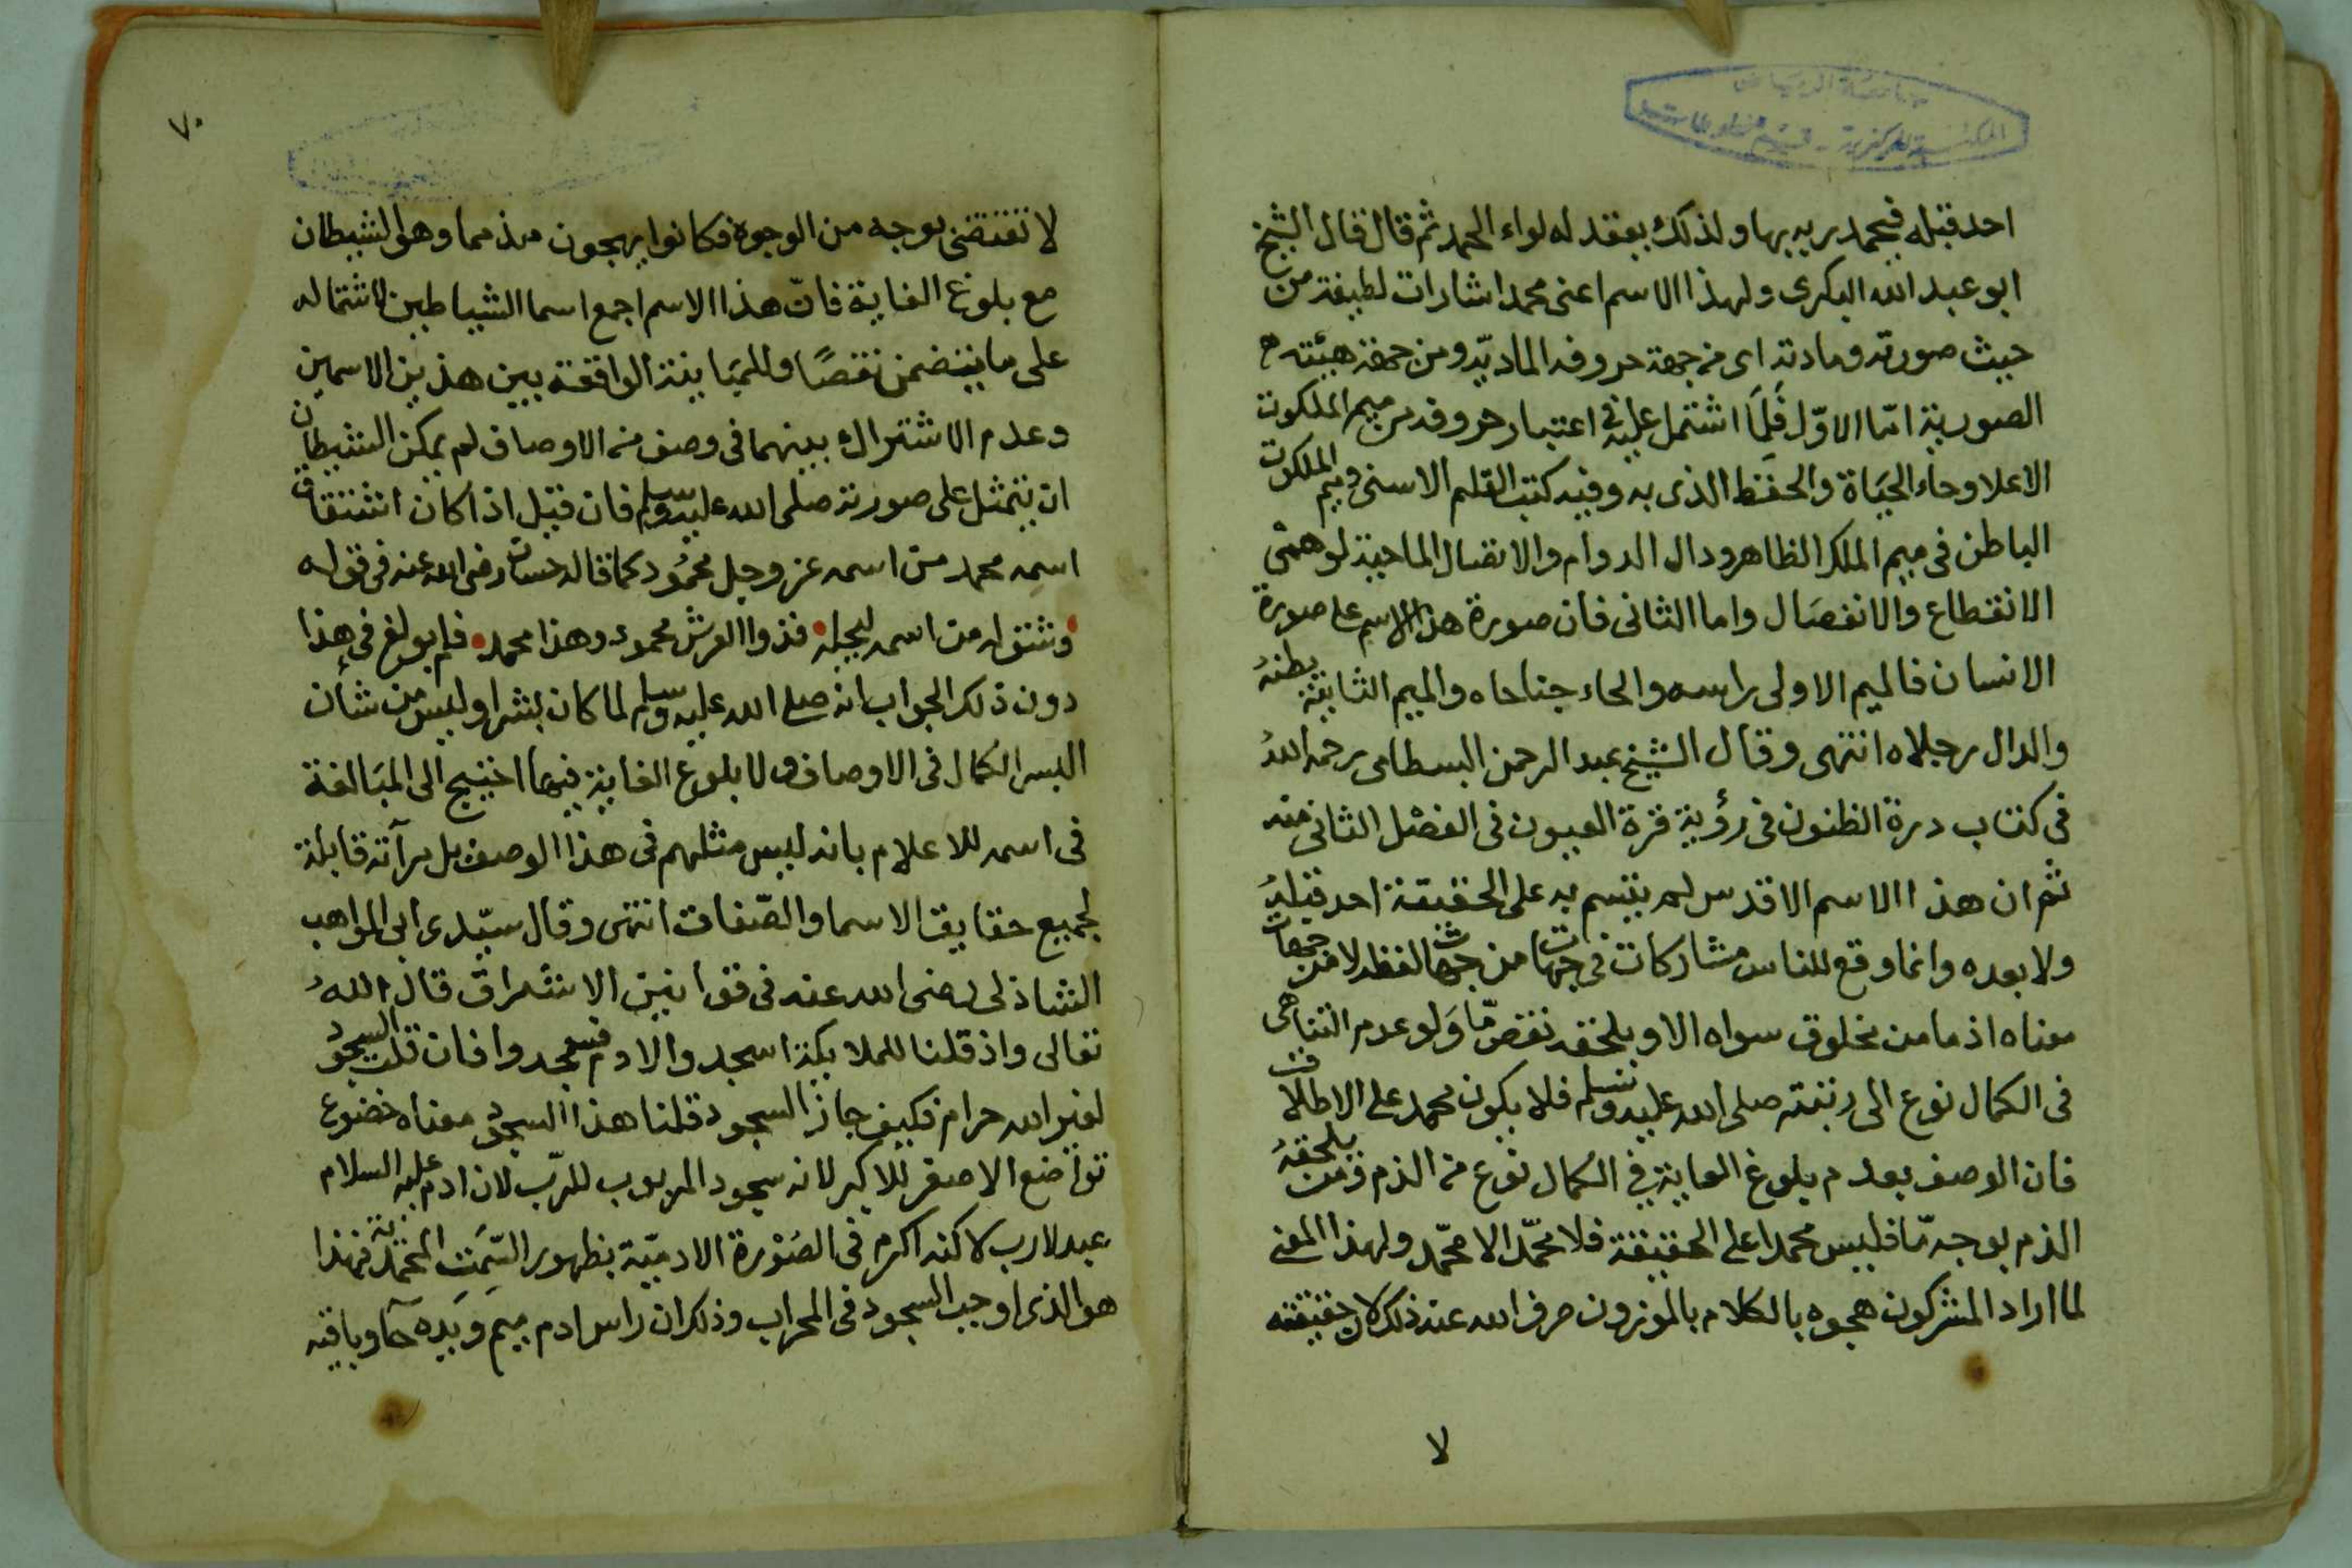 جامعة الرياض
المكتبة المركزية - قسم المخطوطات
احد قبله فيحمد ربه بها ولذلك يعقد له لواء الحمد ثم قال قال الشيخ
ابو عبد الله البكرى ولهذا الاسم اعنى محمد اشارات لطيفة من
حيث صورته ومادته اى من جهة حروفه الماديّه ومن جهة هيئته
الصورية امّا الاوّل فَلِمَا اشتمل عليه فى اعتبار حروفه من ميم الملكوت
الاعلا وحاء الحيَاة والحفظ الذى به وفيه كتب القلم الاسنى وميم الملكوت
الباطن فى ميم الملك الظاهر ودال الدوام والاتصال الماحية لوهمى
الانقطاع والانفصَال واما الثانى فان صورة هذا الاسم على صورة
الانسان فالميم الاولى راسه والحاء جناحاه والميم الثانية بطنهُ
والدال رجلاه انتهى وقال الشيخ عبد الرحمن البسطامى رحمه اللهُ
فى كتاب درة الظنون فى رؤية قرة العيون فى الفصْل الثانى منه
ثم ان هذا الاسم الاقدس لم يتسم به على الحقيقة احد قبلهُ
ولا بعده وانما وقع للناس مشاركات فى جهات من جهات لفظه لا من جهات
معناه اذ ما من مخلوق سواه الا ويلحقه نقص مّا وَلو عدم التناهى
فى الكمال نوع الى رتبته صلى الله عليه وسلم فلا يكون محمد على الاطلاق
فان الوصف بعدم بلوغ الغاية فى الكمال نوع من الذم ومن يلحقهُ
الذم بوجه مّا فليس محمدا على الحقيقة فلا محمّد الا محمّد ولهذا المعنى
لما اراد المشركون هجوه بالكلام بالموزون صرف الله عنه ذلك لان حقيقته
لا
٧٠
لا تقتضى بوجه من الوجوه فكانوا يهجون مذمما وهو الشيطان
مع بلوغ الغاية فانّ هذا الاسم اجمع اسما الشياطين لاشتماله
على ما يتضمن نقصًا وللمبَاينة الواقعة بين هذين الاسمين
وعدم الاشتراك بينهما فى وصف من الاوصاف لم يمكن الشيطان
ان يتمثل على صورته صلى الله عليه وسلم فان قيل اذا كان اشتقاق
اسمه محمد من اسمه عز وجل محمُود كما قاله حسان رضى الله عنه فى قوله
وشق له من اسمه ليجله • فذوا العرش محمود وهذا محمد • فلم بولغ فى هذا
دون ذلك الجواب انه صلى الله عليه وسلم لما كان بشرا وليس من شأن
البسر الكمال فى الاوصاف ولا بلوغ الغاية فيها احتيج الى المبَالغة
فى اسمه للاعلام بانه ليس مثلهم فى هذا الوصف بل مرآته قابلة
لجميع حقايق الاسما والصّفات انتهى وقال سيّدى ابى المواهب
الشاذلى رضى الله عنه فى قوانين الاشراق قال اللهُ
تعالى واذ قلنا للملايكة اسجدوا لادم فسجدوا فان قلت السجود
لغير الله حرام فكيف جاز السجود قلنا هذا السجود معناه خضوع
تواضع الاصغر للاكبر لانه سجود المربوب للرّب لان ادم عليه السلام
عبد لا رب لاكنه اكرم فى الصُوْرة الادميّة بظهور السّمَت المحمّدية فهذا
هو الذى اوجب السجود فى المحراب وذلك ان راس ادم ميم وَيَده حَآ وباقيه